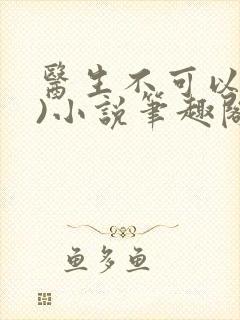 醫生不可以
)小說筆趣閣
魚多魚